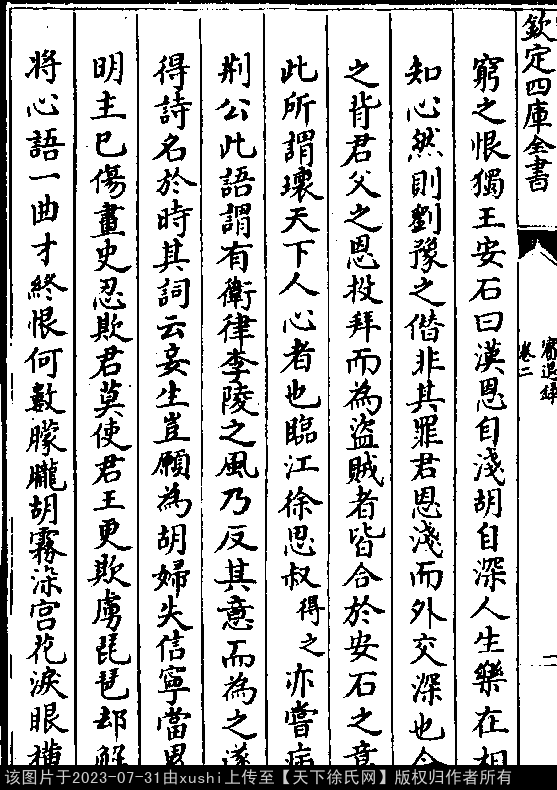 欽定四庫全書
賓退錄
卷二
窮之恨獨王安石曰漢恩自淺胡自深人生樂在相
知心然則劉豫之僣非其罪君恩淺而外交深也今
之背君父之恩投拜而為盜賊者皆合於安石之意
此所謂壞天下人心者也臨江徐思叔得之亦嘗病
荆公此語謂有衛律李陵之風乃反其意而為之遂
得詩名於時其詞云妾生豈願為胡婦失信寧當累
明主已傷畫史忍欺君莫使君王更欺虜琵琶却解
將心語一曲才終恨何數朦朧胡霧染宫花淚眼横
该图片于2023-07-31由xushi上传至【天下徐氏网】版权归作者所有